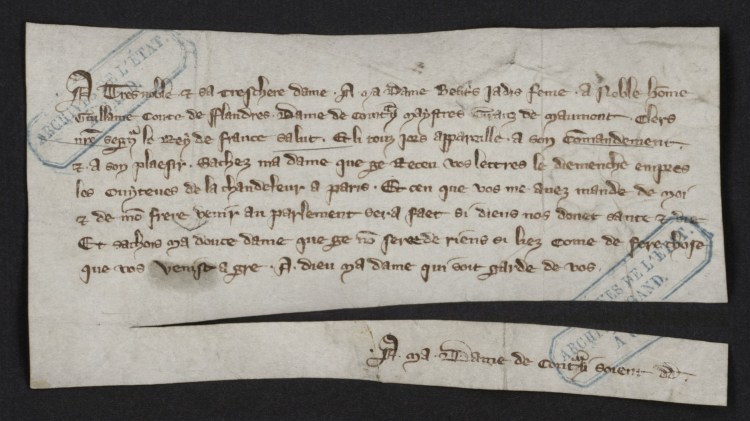 A Tres noble & sa treschere dame . A ma Dame Beatrs jadis feme . a Noble home
Guillame Conte de fflandres . Dame de Contray maystres de maumont Clers
nre segnr le Rey de france Salut . Et li touz jors apparelle . a son Comandement .
& a son plaesir . Sachez ma dame que ge Receu vos lettres le diemenche enpres
les Ouyteves de la chandeleur a paris . Et cen que vos me avez mande de moi
& de mon frere venir au parlement sera faet si diens nos donet sante & vie
Et sachois ma douce dame que ge no de riens si liez Come de fere chose
que vos venist a gre . A . dieu ma dame qui soit garde de vos .
. A . ma . Dame de Contray soient
ARCHIVES DE L'ÉTAT.
A GAND.
ARCHIVES DE L'ÉTAT.
A GAND.